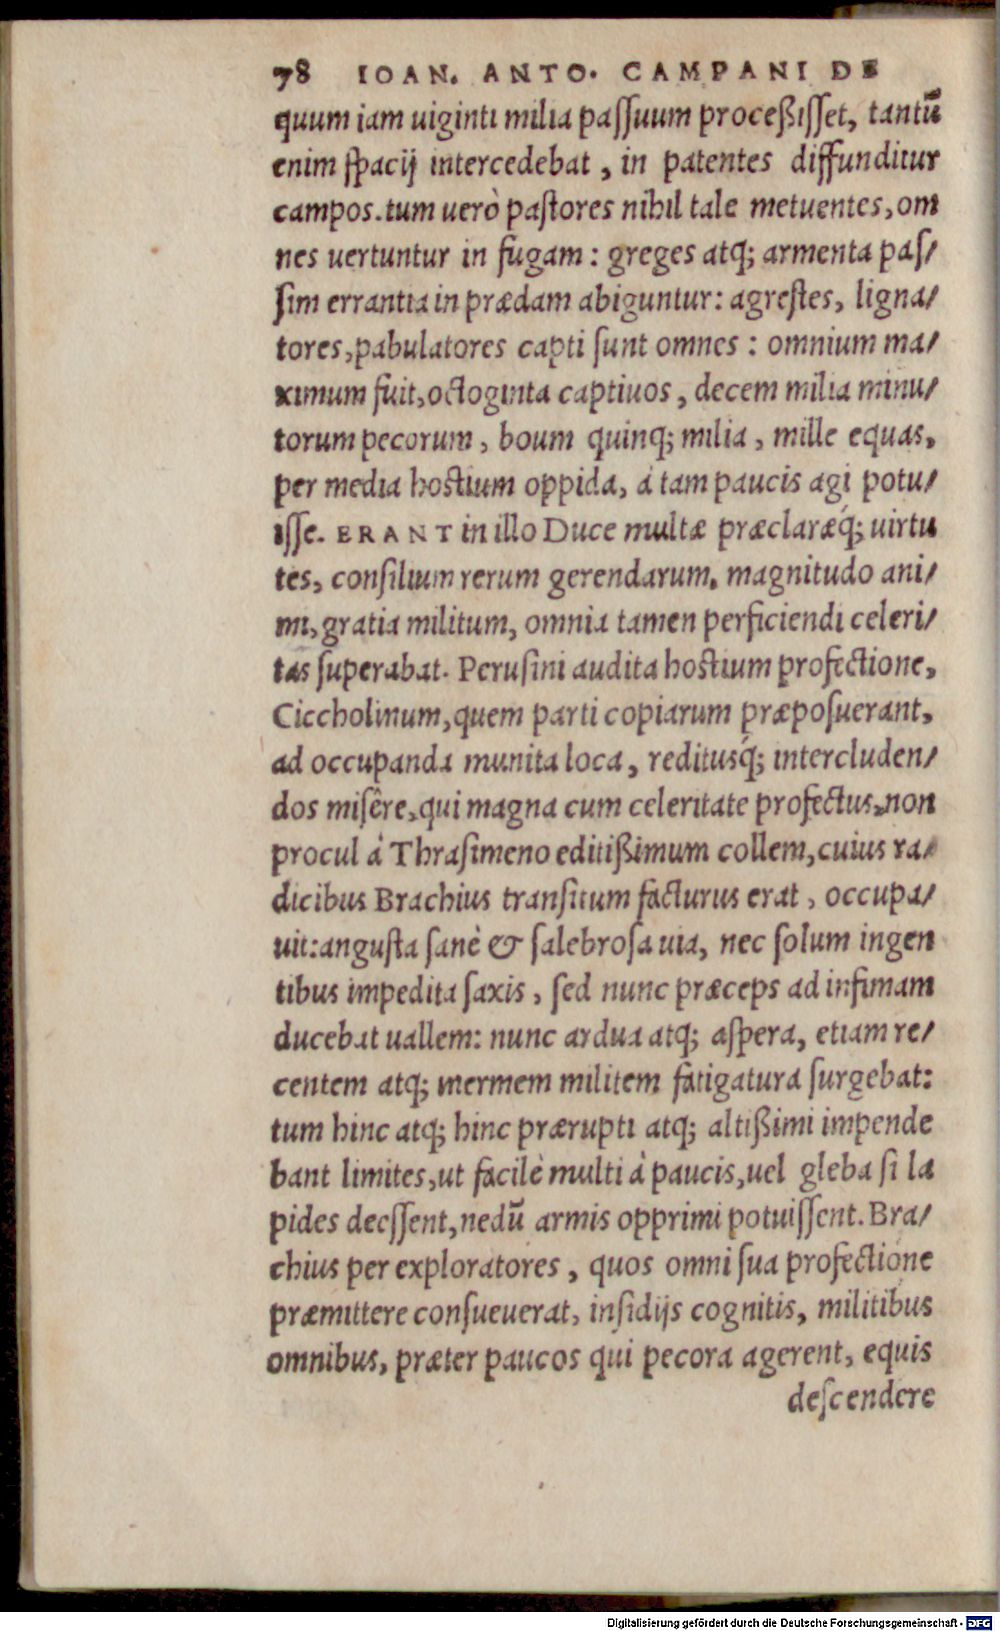 78 IOAN. ANTO. CAMPANI DE
quum iam uiginti milia paſſuum proceßiſſet, tantũ
enim ſpacij intercedebat, in patentes diffunditur
campos. tum uerò paſtores nihil tale metuentes, om
nes uertuntur in fugam: greges atq; armenta paſ/
ſim errantia in prædam abiguntur: agreſtes, ligna/
tores, pabulatores capti ſunt omnes: omnium ma/
ximum fuit, octoginta captiuos, decem milia minu/
torum pecorum, boum quinq; milia, mille equas,
per media hoſtium oppida, á tam paucis agi potu/
iſſe. ERANT in illo Duce multæ præclaræq́; uirtu
tes, conſilium rerum gerendarum, magnitudo ani/
mi, gratia militum, omnia tamen perficiendi celeri/
tas ſuperabat. Peruſini audita hoſtium profectione,
Ciccholinum, quem parti copiarum præpoſuerant,
ad occupanda munita loca, redituſq́; intercluden/
dos miſêre, qui magna cum celeritate profectus, non
procul á Thraſimeno editißimum collem, cuius ra/
dicibus Brachius tranſitum facturus erat, occupa/
uit: anguſta ſanè & ſalebroſa uia, nec ſolum ingen
tibus impedita ſaxis, ſed nunc præceps ad infimam
ducebat uallem: nunc ardua atq; aſpera, etiam re/
centem atq; inermem militem fatigatura ſurgebat:
tum hinc atq; hinc prærupti atq; altißimi impende
bant limites, ut facilè multi à paucis, uel gleba ſi la
pides deeſſent, nedũ armis opprimi potuiſſent. Bra/
chius per exploratores, quos omni ſua profectione
præmittere conſueuerat, inſidijs cognitis, militibus
omnibus, præter paucos qui pecora agerent, equis
deſcendere
Digitalisierung gefördert durch die Deutsche Forschungsgemeinschaft - DFG